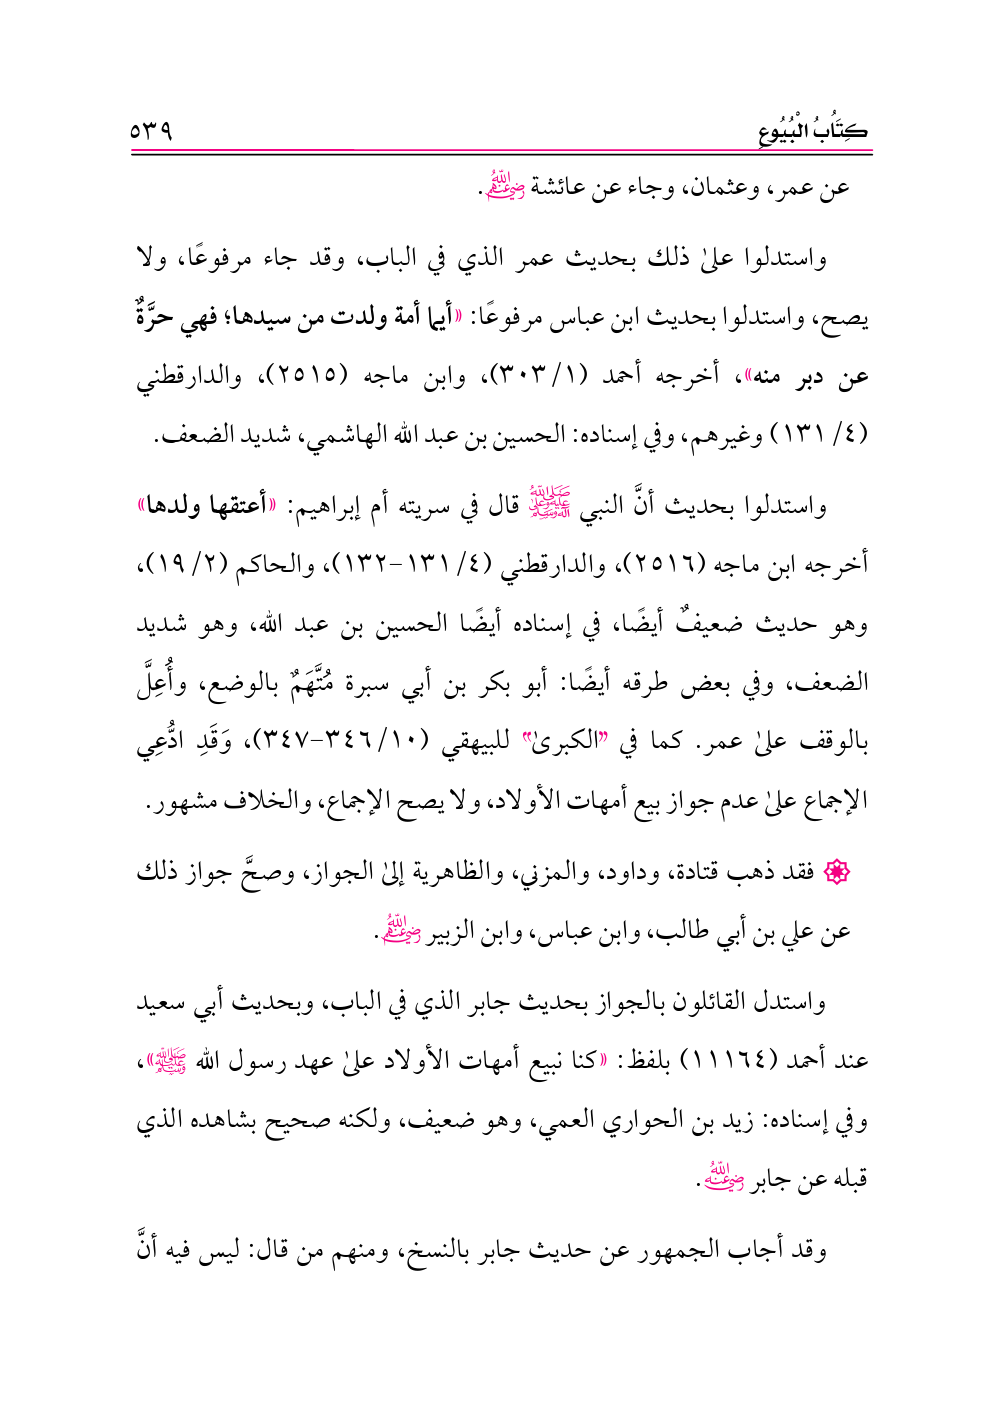 كِتَابُ الْبُيُوعِ ٥٣٩
عن عمر، وعثمان، وجاء عن عائشة رضي الله عنهم.
واستدلوا علىٰ ذلك بحديث عمر الذي في الباب، وقد جاء مرفوعًا، ولا
يصح، واستدلوا بحديث ابن عباس مرفوعًا: «أيما أمة ولدت من سيدها؛ فهي حرَّةٌ
عن دبر منه»، أخرجه أحمد (١/ ٣٠٣)، وابن ماجه (٢٥١٥)، والدارقطني
(٤/ ١٣١) وغيرهم، وفي إسناده: الحسين بن عبد الله الهاشمي، شديد الضعف.
واستدلوا بحديث أنَّ النبي ﷺ قال في سريته أم إبراهيم: «أعتقها ولدها»
أخرجه ابن ماجه (٢٥١٦)، والدارقطني (٤/ ١٣١-١٣٢)، والحاكم (٢/ ١٩)،
وهو حديث ضعيفٌ أيضًا، في إسناده أيضًا الحسين بن عبد الله، وهو شديد
الضعف، وفي بعض طرقه أيضًا: أبو بكر بن أبي سبرة مُتَّهَمٌ بالوضع، وأُعِلَّ
بالوقف علىٰ عمر. كما في "الكبرىٰ" للبيهقي (١٠/ ٣٤٦-٣٤٧)، وَقَدِ ادُّعِي
الإجماع علىٰ عدم جواز بيع أمهات الأولاد، ولا يصح الإجماع، والخلاف مشهور.
۞ فقد ذهب قتادة، وداود، والمزني، والظاهرية إلىٰ الجواز، وصحَّ جواز ذلك
عن علي بن أبي طالب، وابن عباس، وابن الزبير رضي الله عنهم.
واستدل القائلون بالجواز بحديث جابر الذي في الباب، وبحديث أبي سعيد
عند أحمد (١١١٦٤) بلفظ: «كنا نبيع أمهات الأولاد علىٰ عهد رسول الله ﷺ»،
وفي إسناده: زيد بن الحواري العمي، وهو ضعيف، ولكنه صحيح بشاهده الذي
قبله عن جابر رضي الله عنه.
وقد أجاب الجمهور عن حديث جابر بالنسخ، ومنهم من قال: ليس فيه أنَّ